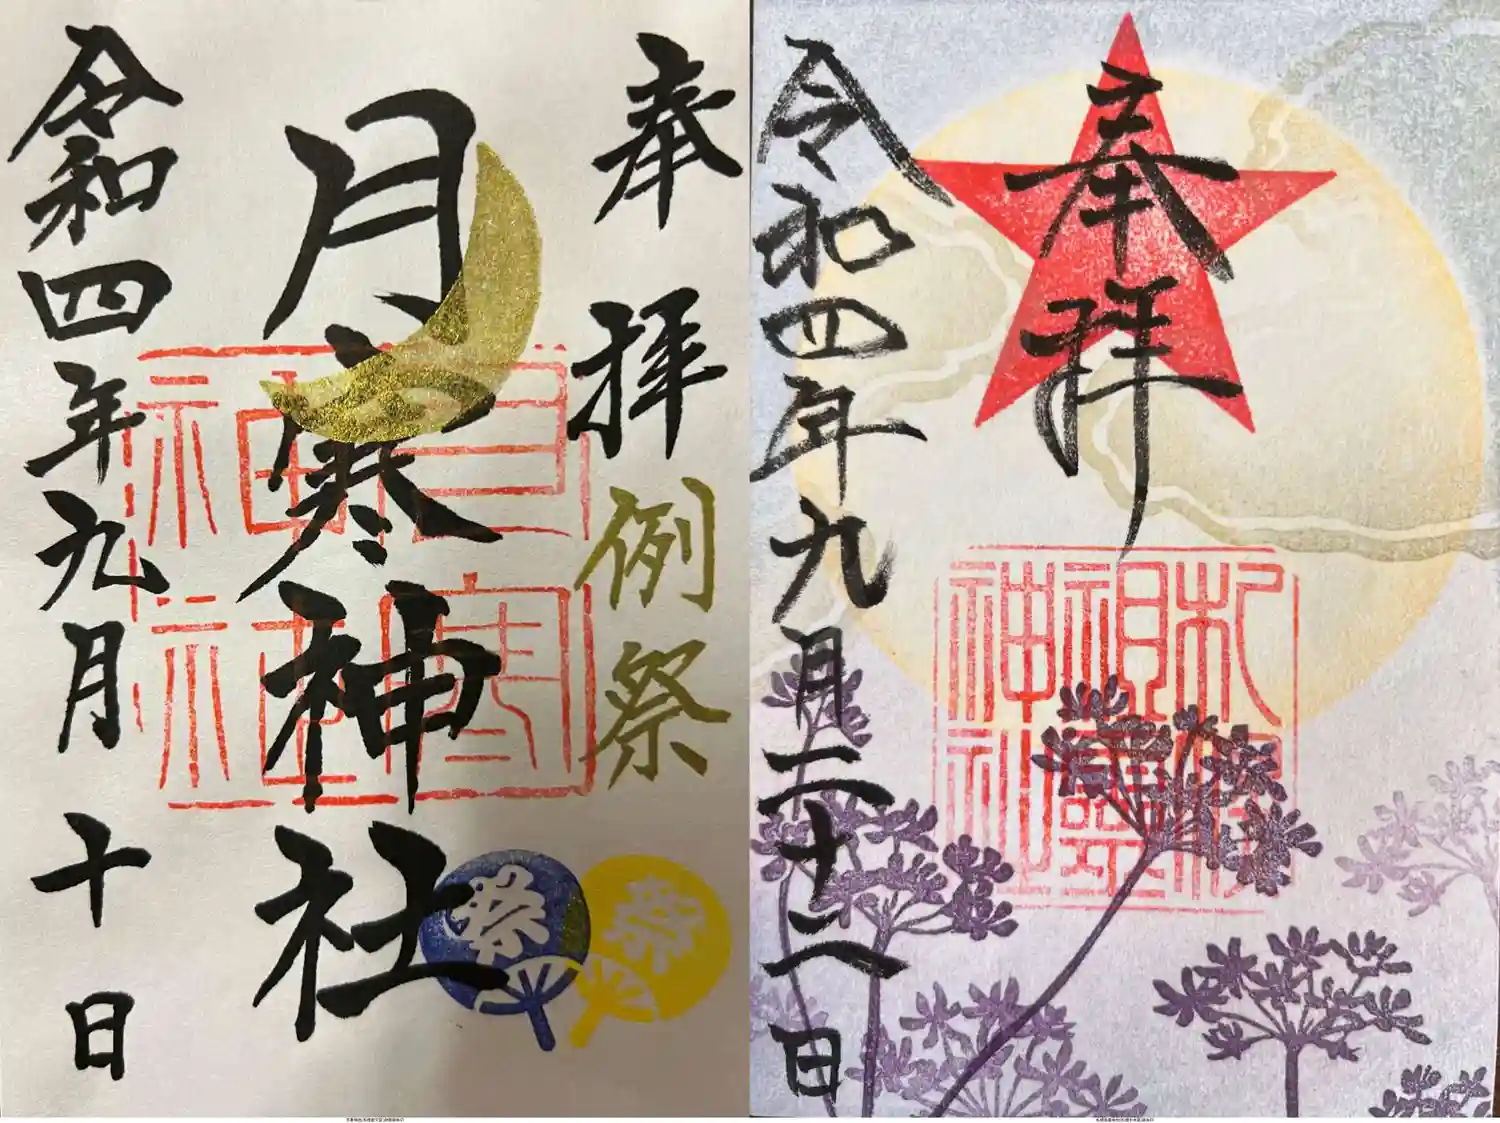 奉拝
例祭
月寒神社
月寒神社
祭
祭
令和四年九月十日
奉拝
札幌祖霊神社
令和四年九月二十二日